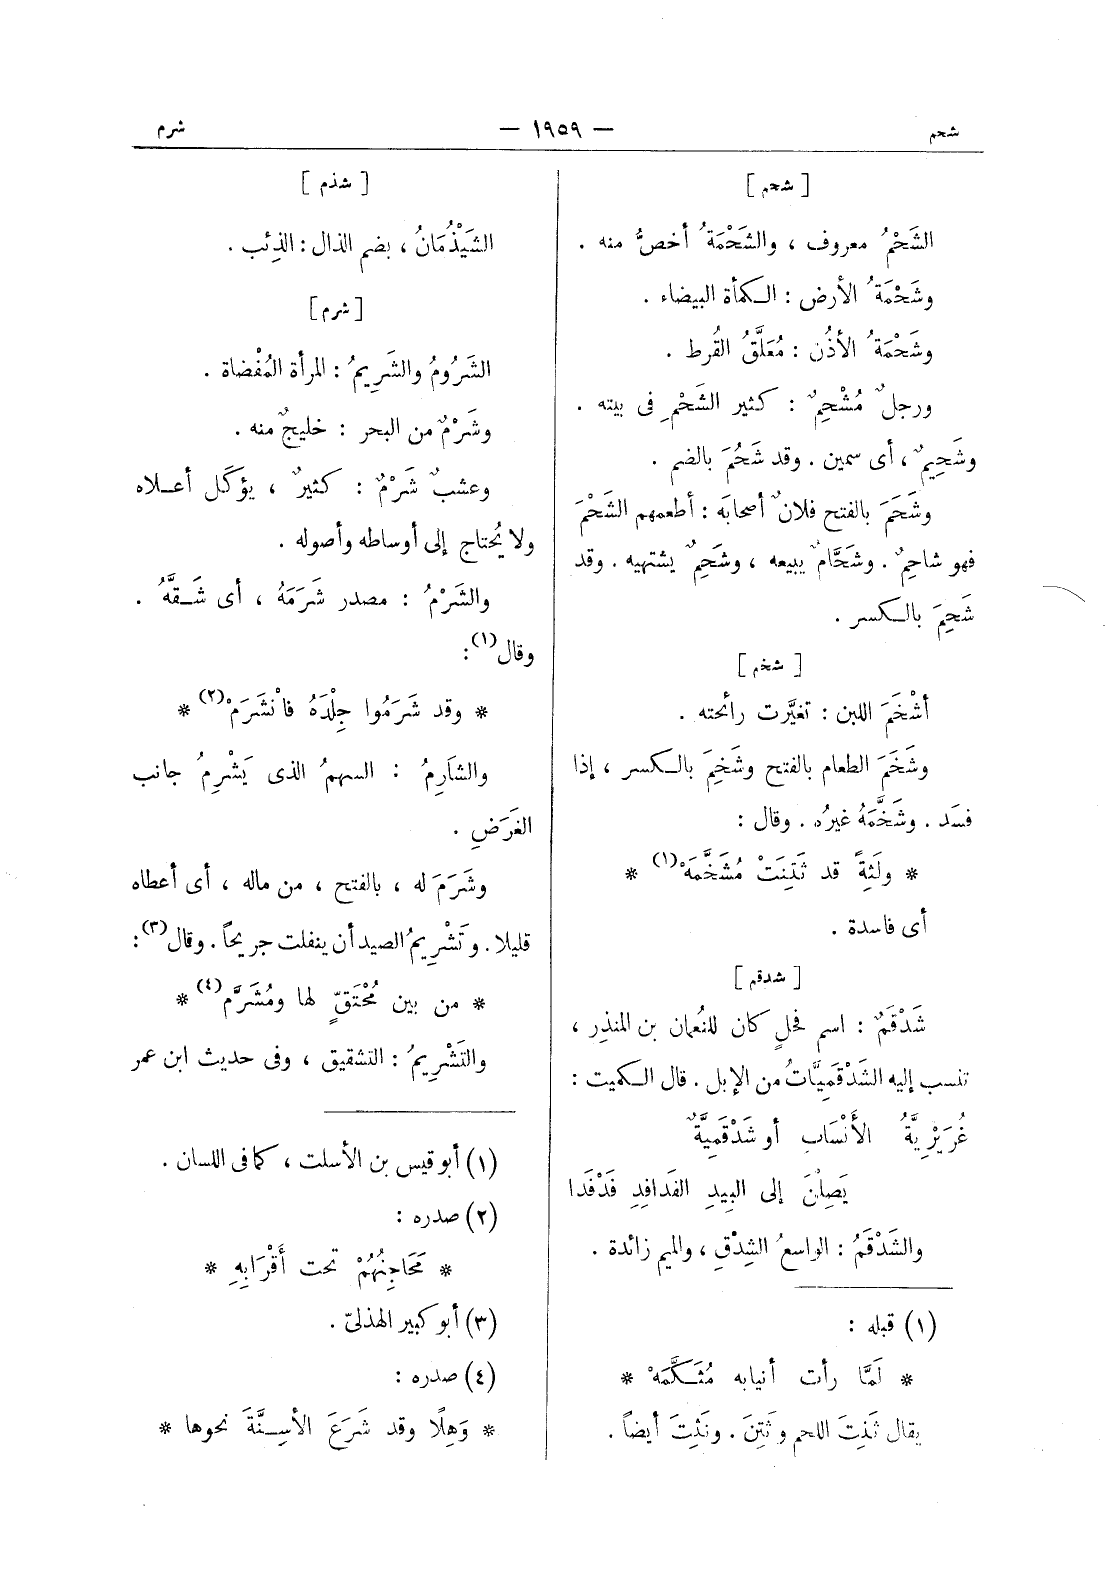 شحم
— ١٩٥٩ —
شرم
[ شحم ]
الشَحْمُ معروف ، والشَحْمَةُ أخصُّ منه .
وشَحْمَةُ الأرض : الـكمأة البيضاء .
وشَحْمَةُ الأذُن : مُعَلَّقُ القُرط .
ورجلٌ مُشْحِمٌ : كثير الشَحْمِ فى بيته .
وشَحِيمٌ ، أى سمين . وقد شَحُمَ بالضم .
وشَحَمَ بالفتح فلانٌ أصحابَه : أطعمهم الشَحْمَ
فهو شاحِمٌ . وشَحَّامٌ يبيعه ، وشَحِمٌ يشتهيه . وقد
شَحِمَ بالـكسر .
[ شخم ]
أشْخَمَ اللبن : تغيَّرت رائحته .
وشَخَمَ الطعام بالفتح وشَخِمَ بالـكسر ، إذا
فسَد . وشَخَّمَهُ غيرُه . وقال :
* ولَثِةً قد ثَتِنَتْ مُشَخَّمَهْ(١) *
أى فاسدة .
[ شدقم ]
شَدْقَمٌ : اسم فحلٍ كان للنُعمان بن المنذِر ،
تنسب إليه الشَدْقَمِيَّاتُ من الإبل . قال الـكميت :
غُرَيْرِيَّةُ الأَنْسَابِ أو شَدْقَمِيَّةٌ
يَصِلْنَ إلى البِيدِ الفَدافِدِ فَدْفَدا
والشَدْقَمُ : الواسعُ الشِدْقِ ، والميم زائدة .
(١) قبله :
* لَمَّا رأت أنيابه مُثَـكَّمَهْ *
يقال ثَنِتَ اللحم وثَتِنَ . ونَثِتَ أيضاً .
[ شذم ]
الشَيْذُمَانُ ، بضم الذال : الذِئب .
[ شرم ]
الشَرُومُ والشَرِيمُ : المرأة المُفْضاة .
وشَرْمٌ من البحر : خليجٌ منه .
وعشبٌ شَرْمٌ : كثيرٌ ، يؤكَل أعـلاه
ولا يُحتاج إلى أوساطه وأصوله .
والشَرْمُ : مصدر شَرَمَهُ ، أى شَـقَّهُ .
وقال(١) :
* وقد شَرَمُوا جِلْدَهُ فانْشَرَمْ(٢) *
والشارِمُ : السهمُ الذى يَشْرِمُ جانب
الغَرَضِ .
وشَرَمَ له ، بالفتح ، من ماله ، أى أعطاه
قليلا . وتَشْرِيمُ الصيد أن ينفلت جريحاً . وقال(٣) :
* من بين مُحْتَقٍّ لها ومُشَرَّمِ(٤) *
والتَشْرِيمُ : التشقيق ، وفى حديث ابن عمر
(١) أبو قيس بن الأسلت ، كما فى اللسان .
(٢) صدره :
* مَحَاجِنُهُمْ تحت أَقْرَابِهِ *
(٣) أبو كبير الهذلىّ .
(٤) صدره :
* وَهِلًا وقد شَرَعَ الأسِـنَّةَ نحوها *